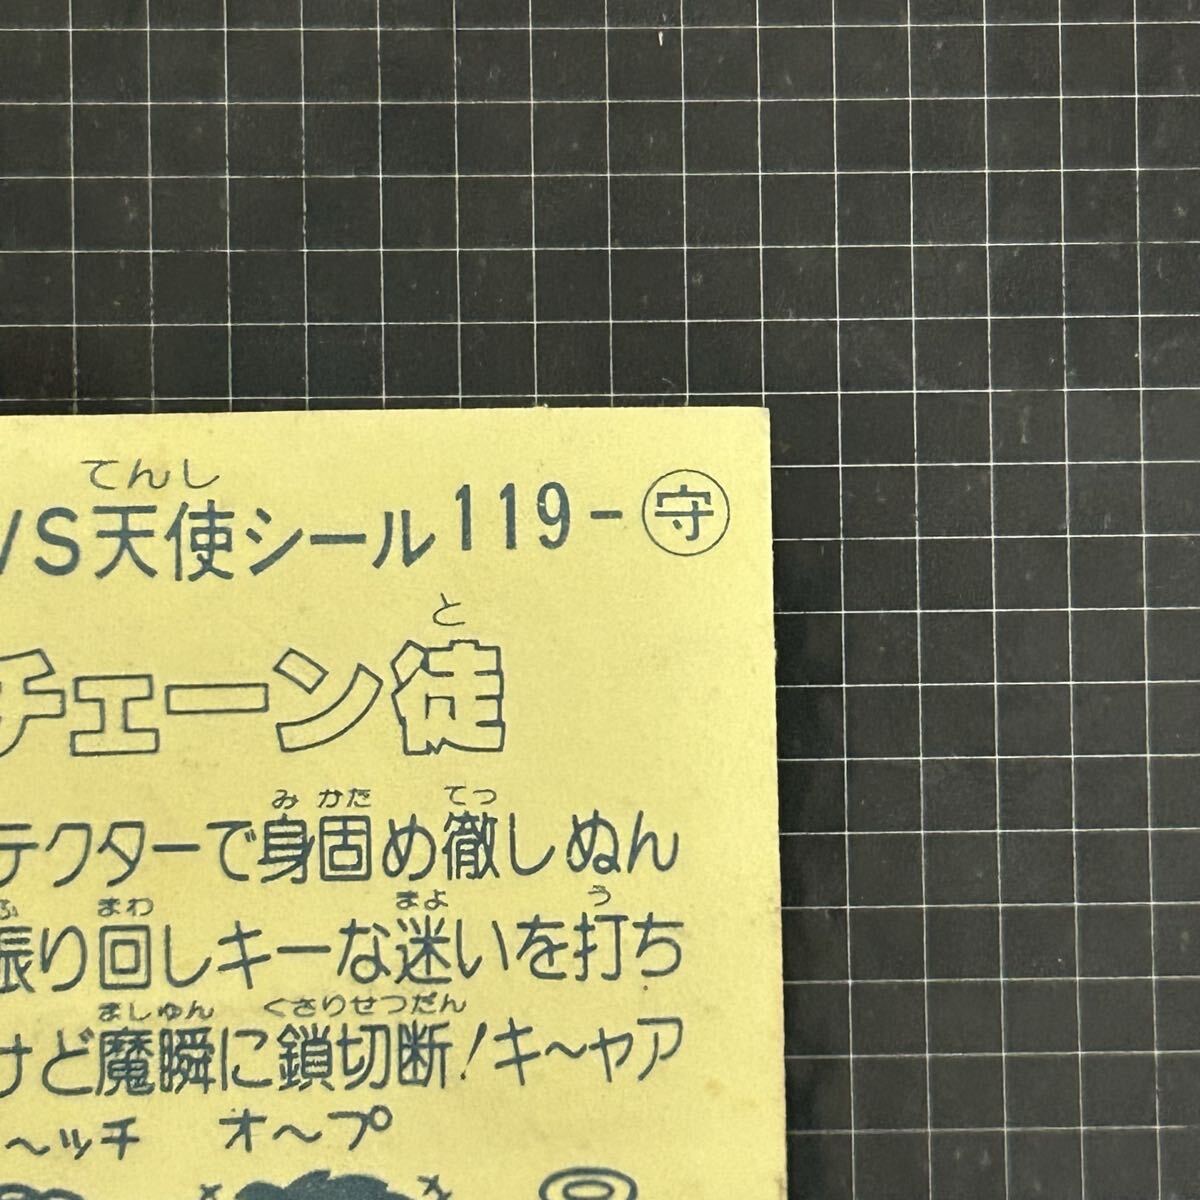 てんし
VS天使シール 119-守
と
チェーン徒
み かた てつ
テクターで身固め徹しぬん
ふ まわ まよ う
振り回しキーな迷いを打ち
ましゅん くさりせつだん
けど魔瞬に鎖切断!キ〜ャア
〜ッチ オ〜プ